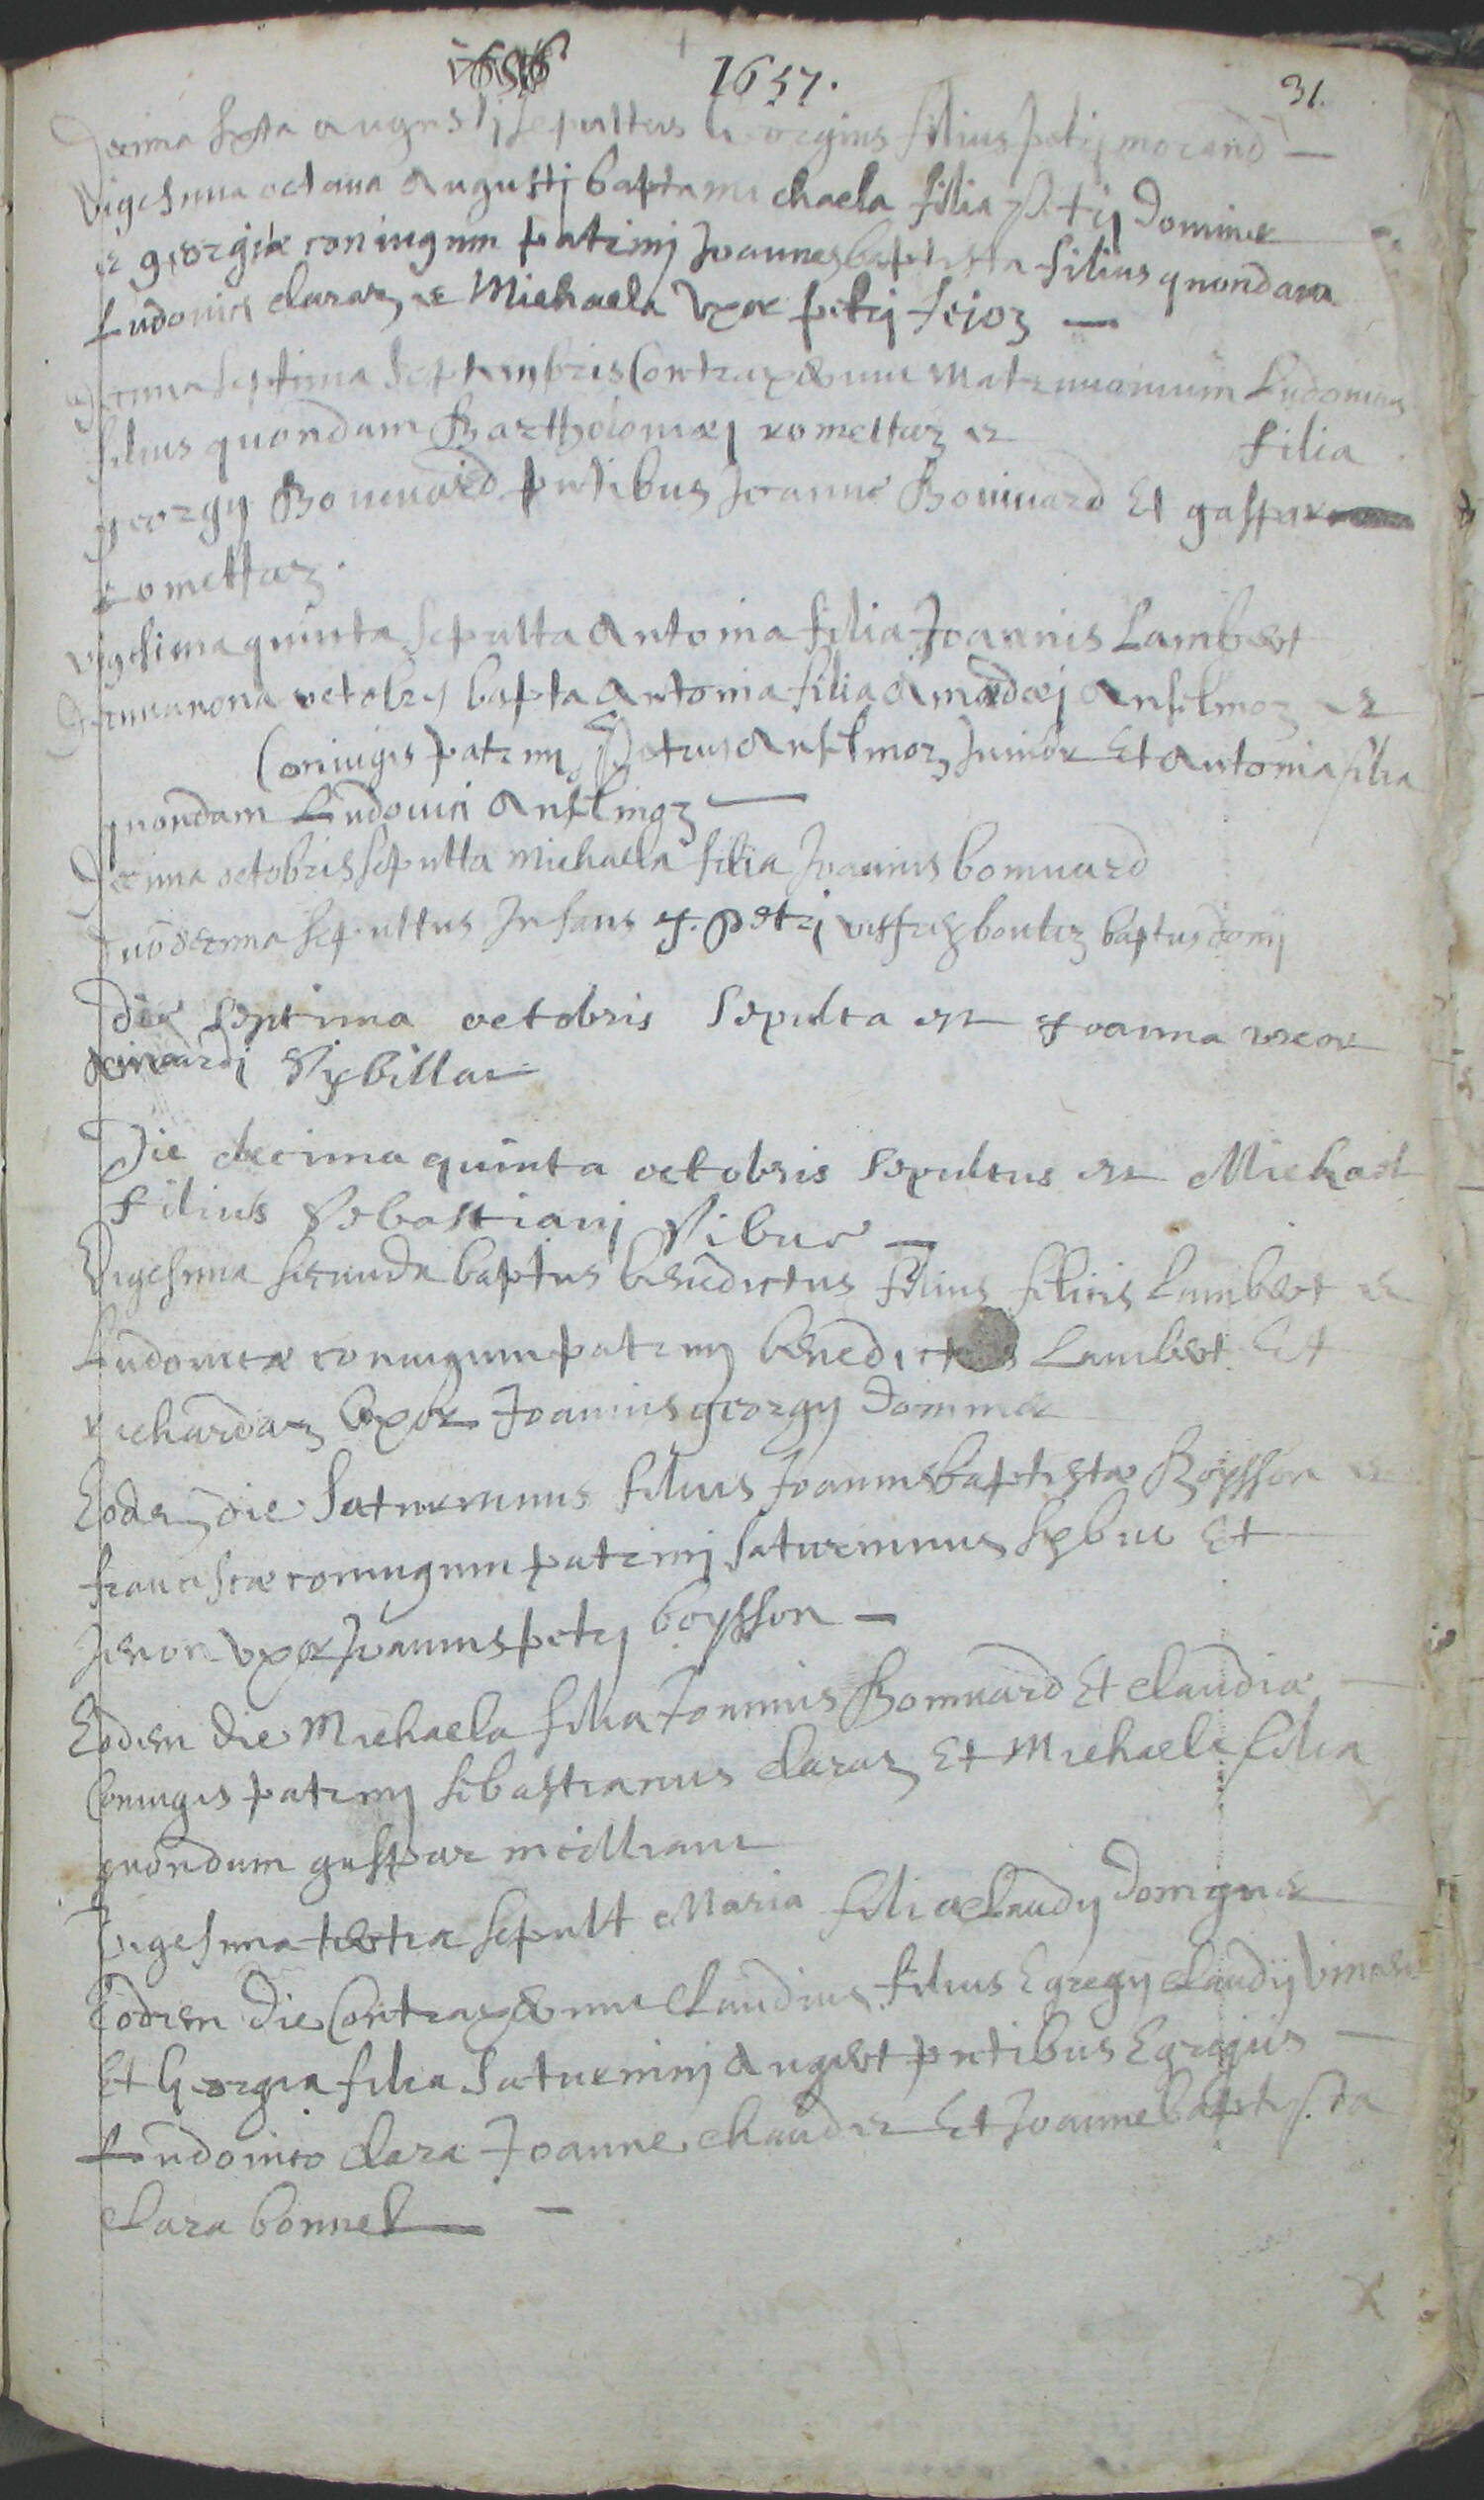 1657.
31.
Decima sexta augustj sepultus Georgius filius petrj morand
Vigesima octaua Augustj bapta michaela filia petrj Dominer
et georgiæ coniugum patrinj Joannesbaptista filius quondam
Ludouici claraz et Michaela Vxor petrj fejoz
Decima septima Septembris Contraxerunt Matrimonium Ludouicus
filius quondam Bartholomæj romettaz et filia
georgij Bouuard pntibus Joanne Bouuard Et gaspar
romettaz.
vigesima quinta sepulta Antonia filia Joannis Lambert
Decimanona octobrj bapta Antonia filia Amædej Anselmoz et
Coniugis patrinj Petrus Anselmoz Junior Et Antonia filia
quondam Ludouici Anselmoz
Decima octobris sepulta Michaela filia Joannis bouuard
Duodecima sepultus Infans petrj baptus domj
Die septima octobris Sepulta est Joanna vxor
Sybillae
Die decima quinta octobris Sepultus est Michael
Filius Sebastianj Sibue
Vigesima secunda baptus benedictus filius felicis Lambert et
Ludouicæ coniugum patrinj benedictus Lambert Et
richardaz Vxor Joannis georgij Dominer
Eodem die Saturninus filius Joannisbaptistæ Boysson et
franciscæ coniugum patrinj Saturninus Sybue Et
Jenon Vxor Joannis petrj boysson
Eodem die Michaela filia Joannis Bouuard Et Claudiæ
Coniugis patrinj Sebastianus claraz Et Michaela filia
quondam gaspar meilliane
Vigesima tertia sepult Maria filia Claudij domgner
Eodem die Contraxerunt Claudius filius Egregij Claudij
Et Georgia filia Saturninj Augert pntibus Egregijs
Ludouico Clara Joanne chaudet Et Joannebaptista
Clara bonnel